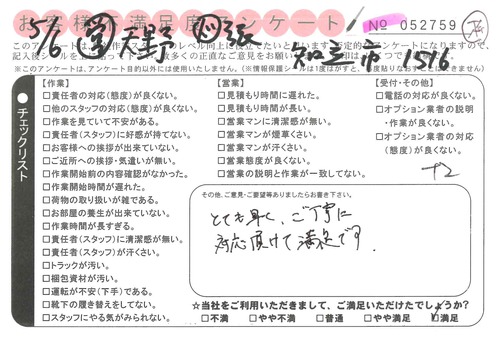 お客様不満足度アンケート
№ 052759
5/6 天野
知立市 1516
記入後シールを
(※このアンケートは、アンケート目的以外には使用いたしません。
チェックリスト
【作業】
□責任者の対応(態度)が良くない。
□他のスタッフの対応(態度)が良くない。
□作業を見ていて不安がある。
□責任者(スタッフ)に好感が持てない。
□お客様への挨拶が出来ていない。
□ご近所への挨拶・気遣いが無い。
□作業開始前の内容確認がなかった。
□作業開始時間が遅れた。
□荷物の取り扱いが雑である。
□お部屋の養生が出来ていない。
□作業時間が長すぎる。
□責任者(スタッフ)に清潔感が無い。
□責任者(スタッフ)が汗くさい。
□トラックが汚い。
□梱包資材が汚い。
□運転が不安(下手)である。
□靴下の履き替えをしてない。
□スタッフにやる気がみられない。
【営業】
□見積もり時間に遅れた。
□見積もり時間が長い。
□営業マンに清潔感が無い。
□営業マンが煙草くさい。
□営業マンが汗くさい。
□営業態度が良くない。
□営業の説明と作業が一致してない。
【受付・その他】
□電話の対応が良くない。
□オプション業者の説明
・作業が良くない。
□オプション業者の対応
(態度)が良くない。
+2
その他、ご意見・ご要望等ありましたらお書き下さい。
とても早く、ご丁寧に
対応頂けて満足です。
☆当社をご利用いただきまして、ご満足いただけたでしょうか?
□不満 □やや不満 □普通 □やや満足 □満足